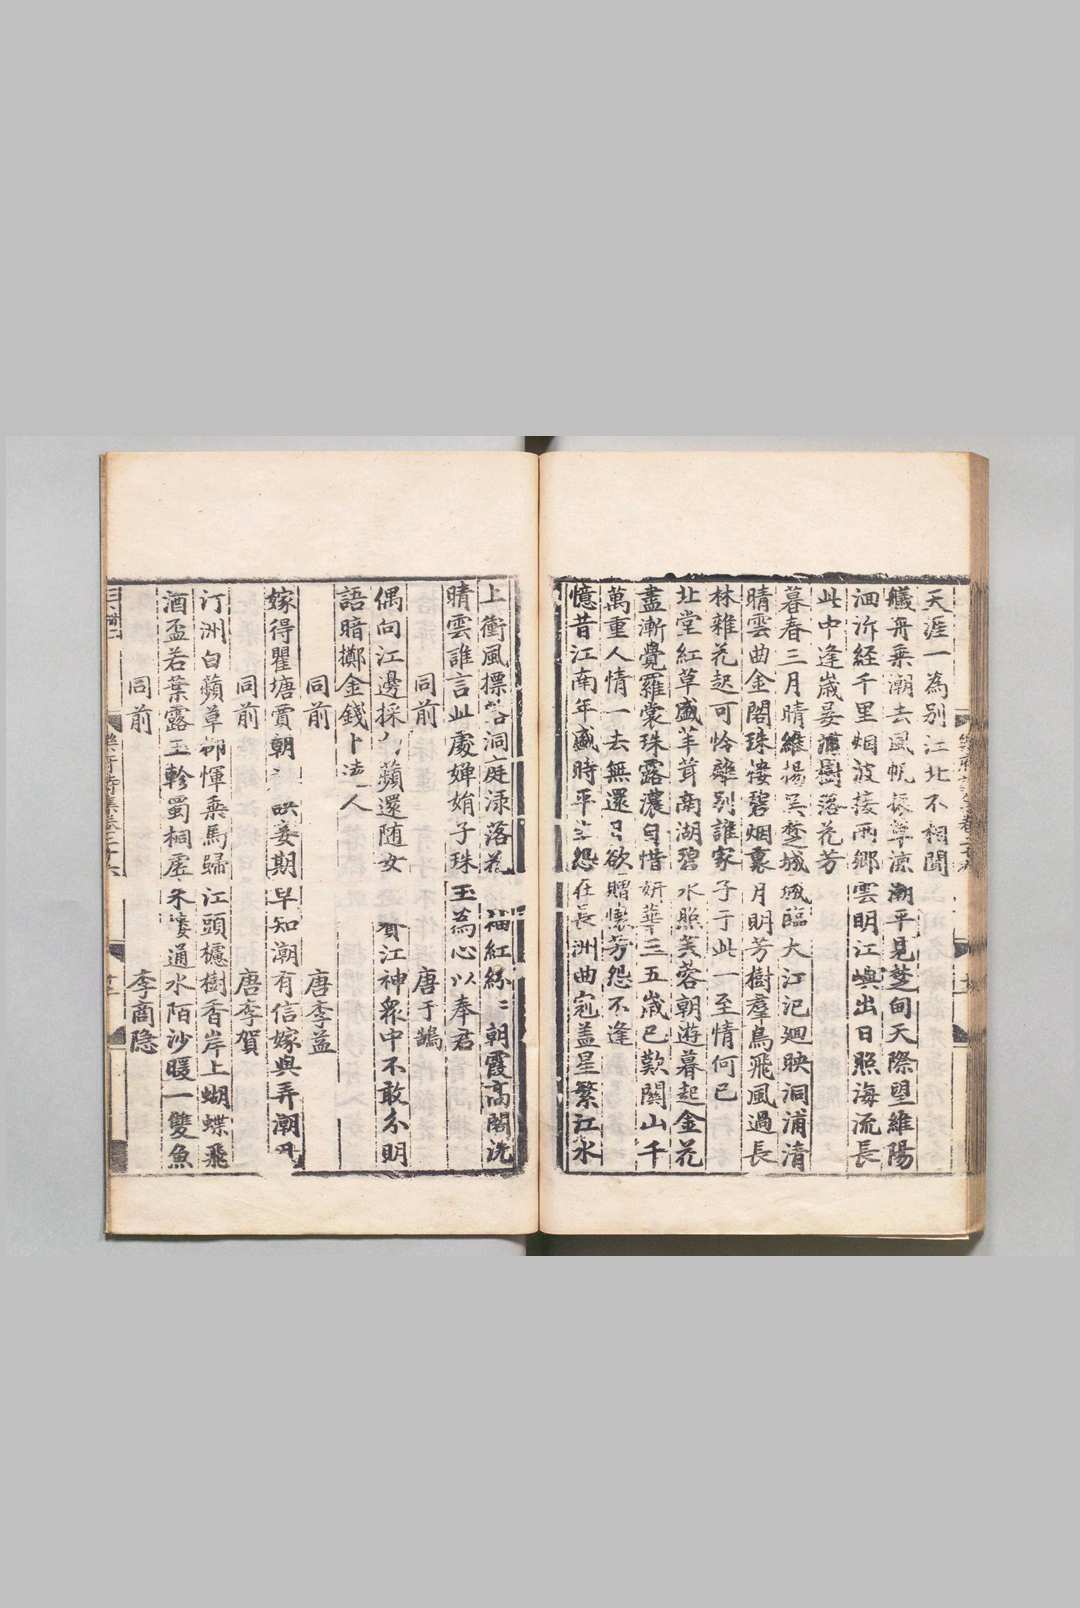 天涯一為別江北不相聞
艤舟乗潮去風帆振早涼潮平見楚甸天際望維陽
洄泝経千里烟波接兩鄉雲明江嶼出日照海流長
此中逢歲晏浦樹落花芳
暮春三月晴維揚吳楚城城臨大江汜廻映洞浦清
晴雲曲金閣珠樓碧烟裏月明芳樹羣鳥飛風過長
林雜花起可怜離別誰家子于此一至情何已
北堂紅草盛丰茸南湖碧水照芙蓉朝遊暮起金花
盡漸覺羅裳珠露濃自惜妍華三五歲已歎関山千
萬重人情一去無還日欲贈懷芳怨不逢
憶昔江南年盛時平生怨在長洲曲冠盖星繁江水
上衝風摽落洞庭渌落花 袖紅紛 朝霞髙閣洗
晴雲誰言此處嬋娟子珠玉為心以奉君
同前 唐于鵠
偶向江邊採 蘋還随女 賽江神衆中不敢分明
語暗擲金錢卜 人
同前 唐李益
嫁得瞿塘賈朝 誤妾期早知潮有信嫁與弄潮
同前 唐李賀
汀洲白蘋草柳惲乗馬歸江頭櫨樹香岸上蝴蝶飛
酒盃若葉露玉軫蜀桐虚朱樓通水陌沙暖一雙魚
同前 李商隐
樂府詩集卷二十六